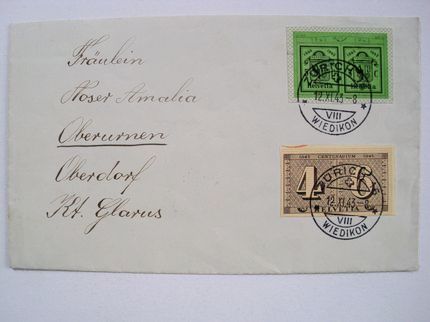 Fräulein
Noser Amalia
Oberurnen
Oberdorf
Kt. Glarus
Helvetia
ZÜRICH 3
12.XI.43-8
VIII
WIEDIKON
1843 CENTENARIUM 1943
4 6
ZÜRICH 3
12.XI.43-8
VIII
WIEDIKON